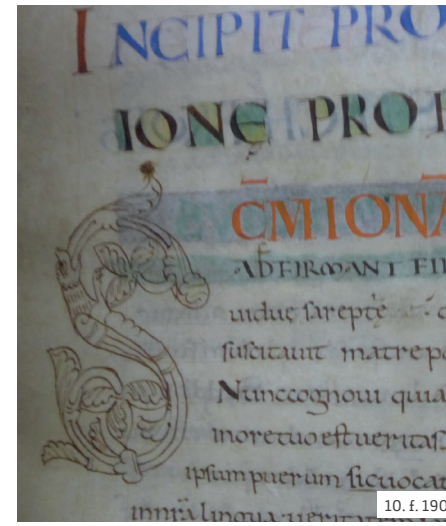 INCIPIT PRO
IONE PRO
S C̄M IONA
ADFIRMANT FI
uidue sarepte
suscitauit matre
Nunc cognoui quia
in ore tuo est ueritas
ipsum puerum sic uocat
in nr̄a lingua
10. f. 190